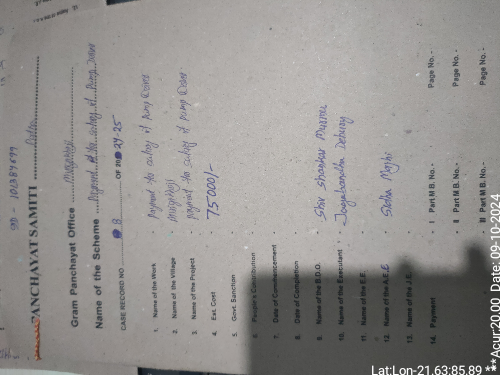 SD - 102389699
PANCHAYAT SAMITI
Gram Panchayat Office
Name of the Scheme Payment of the salary of Pump Driver
CASE RECORD NO. 8 OF 2024-25
1. Name of the Work - Payment the salary of Pump Driver
2. Name of the Village -
3. Name of the Project - Payment the salary of Pump Driver
4. Est. Cost - 75000/-
5. Govt. Sanction
6. People's Contribution
7. Date of Commencement -
8. Date of Completion -
9. Name of the B.D.O. - Shiv Shankar
10. Name of the Executant - Jogabandhu
11. Name of the E.E. -
12. Name of the A.E.E - Sidha Majhi
13. Name of the J.E. -
14. Payment - I Part M.B. No. - Page No. -
II Part M.B. No. - Page No. -
III Part M.B. No. - Page No. -
Lat:Lon-21.63:85.89
**Acur:20.00 Date: 09-10-2024